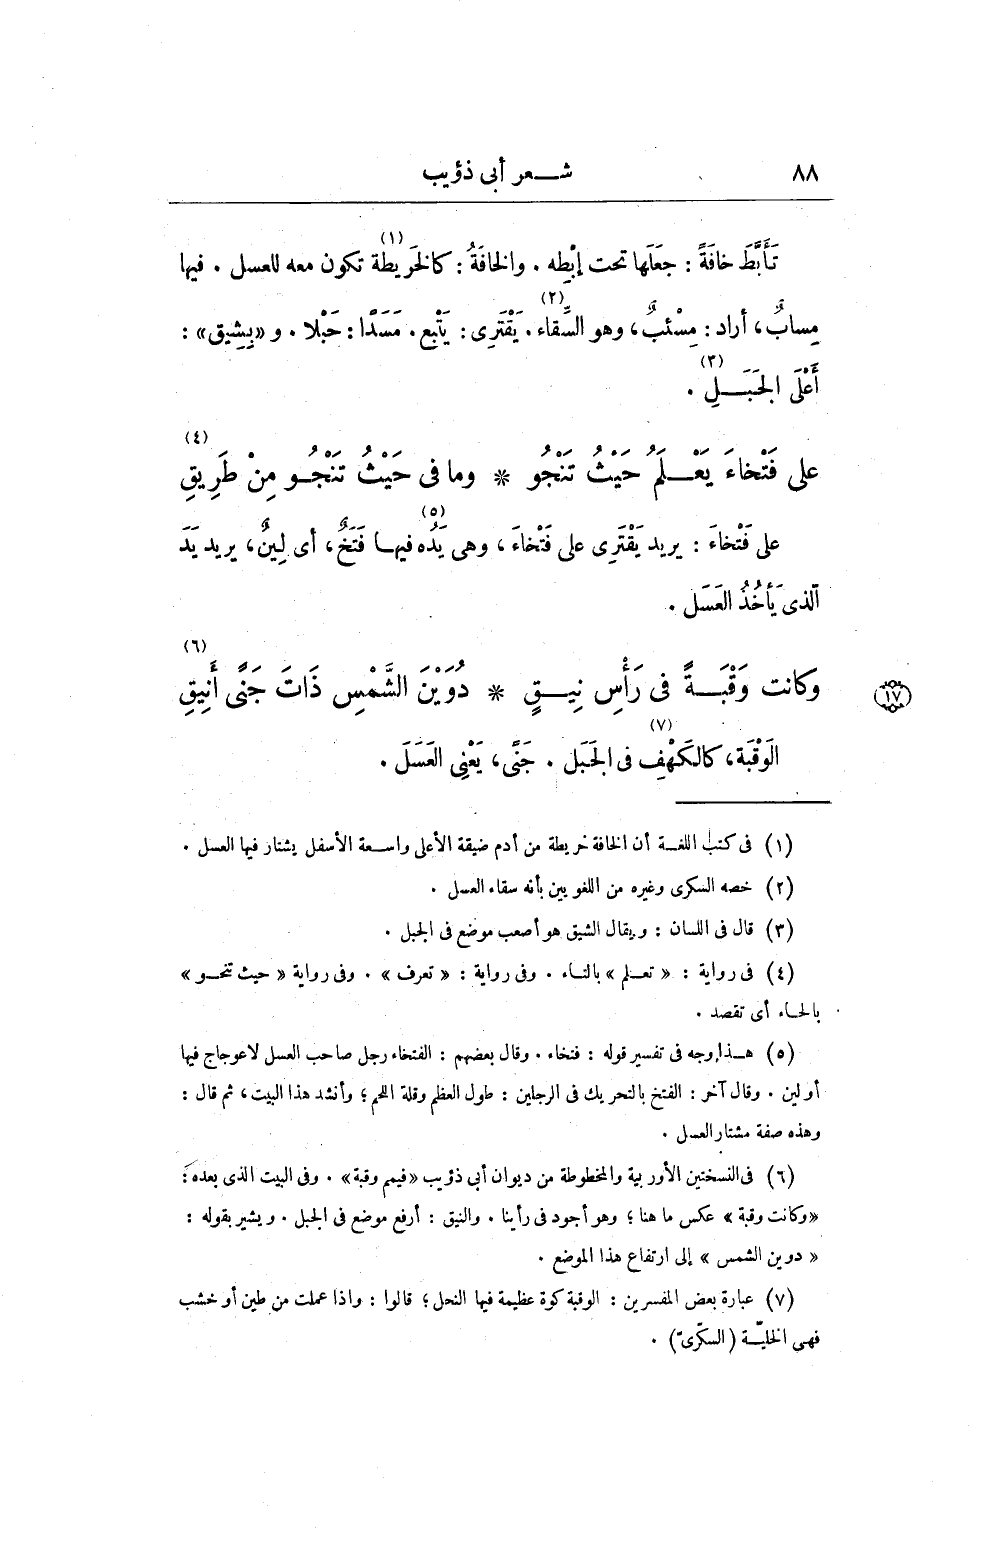 ٨٨ شعر أبى ذؤيب
تَأَبَّطَ خافَةً : جعَلَها تحت إبْطِه . والخافَةُ : كالخَرِيطة (١) تكون معه للعسل . فيها
مِسابٌ، أراد : مِسْئبٌ، وهو السِّقاء (٢) . يَقْتَرِى : يَتْبع . مَسَدًا : حَبْلا . و «بِشِيق» :
أَعْلَى الجَبَلِ (٣) .
على فَتْخاءَ يَعْلَمُ حَيْثُ تَنْجُو * وما فى حَيْثُ تَنْجُو مِنْ طَرِيقِ (٤)
على فَتْخاءَ : يريد يَقْتَرِى على فَتْخاءَ، وهى يَدُه (٥) فيها فَتَخٌ، أى لِينٌ، يريد يَدَ
آلذى يَأخُذُ العَسَل .
وكانت وَقْبَةً فى رَأْسِ نِيقٍ * دُوَيْنَ الشَّمْسِ ذَاتَ جَنًى أَنِيقِ (٦)
١٧
الوَقْبَة، كالكَهْفِ (٧) فى الجَبَل . جَنًى، يَعْنِى العَسَلَ .
(١) فى كتب اللغة أن الخافة خريطة من أدم ضيقة الأعلى واسعة الأسفل يشتار فيها العسل .
(٢) خصه السكرى وغيره من اللغويين بأنه سقاء العسل .
(٣) قال فى اللسان : ويقال الشيق هو أصعب موضع فى الجبل .
(٤) فى رواية : « تعلم » بالتاء . وفى رواية : « تعرف » . وفى رواية « حيث تنحو »
بالحاء أى تقصد .
(٥) هذا وجه فى تفسير قوله : فتخاء . وقال بعضهم : الفتخاء رجل صاحب العسل لاعوجاج فيها
أولين . وقال آخر : الفتخ بالتحريك فى الرجلين : طول العظم وقلة اللحم؛ وأنشد هذا البيت، ثم قال :
وهذه صفة مشتار العسل .
(٦) فى النسختين الأوربية والمخطوطة من ديوان أبى ذؤيب «فيمم وقبة» . وفى البيت الذى بعده :
«وكانت وقبة» عكس ما هنا؛ وهو أجود فى رأينا . والنيق : أرفع موضع فى الجبل . ويشير بقوله :
« دوين الشمس » إلى ارتفاع هذا الموضع .
(٧) عبارة بعض المفسرين : الوقبة كوة عظيمة فيها النحل؛ قالوا : واذا عملت من طين أو خشب
فهى الخليّة (السكّرىّ) .